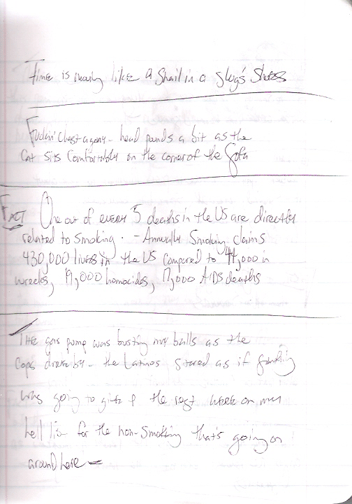 Time is nearly like a Snail in a slug's Shoes
chest agony - head pounds a bit as the
Cat sits Comfortably on the corner of the Sofa
Fact One out of every 5 deaths in the US are directly
related to smoking. - Annually Smoking claims
430,000 lives in the US Compared to 44,000 in
wrecks, 19,000 homocides, AIDS deaths
The gas pump was busting my balls as the
Cops drove by - the Latinos stared as if
was going to the rest on my
for the non-smoking that's going on
around here -